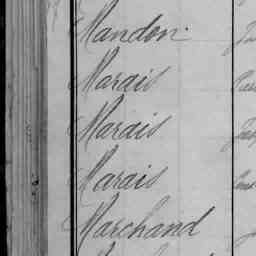 Mandon.
Marais
Marais
Marais
Marchand